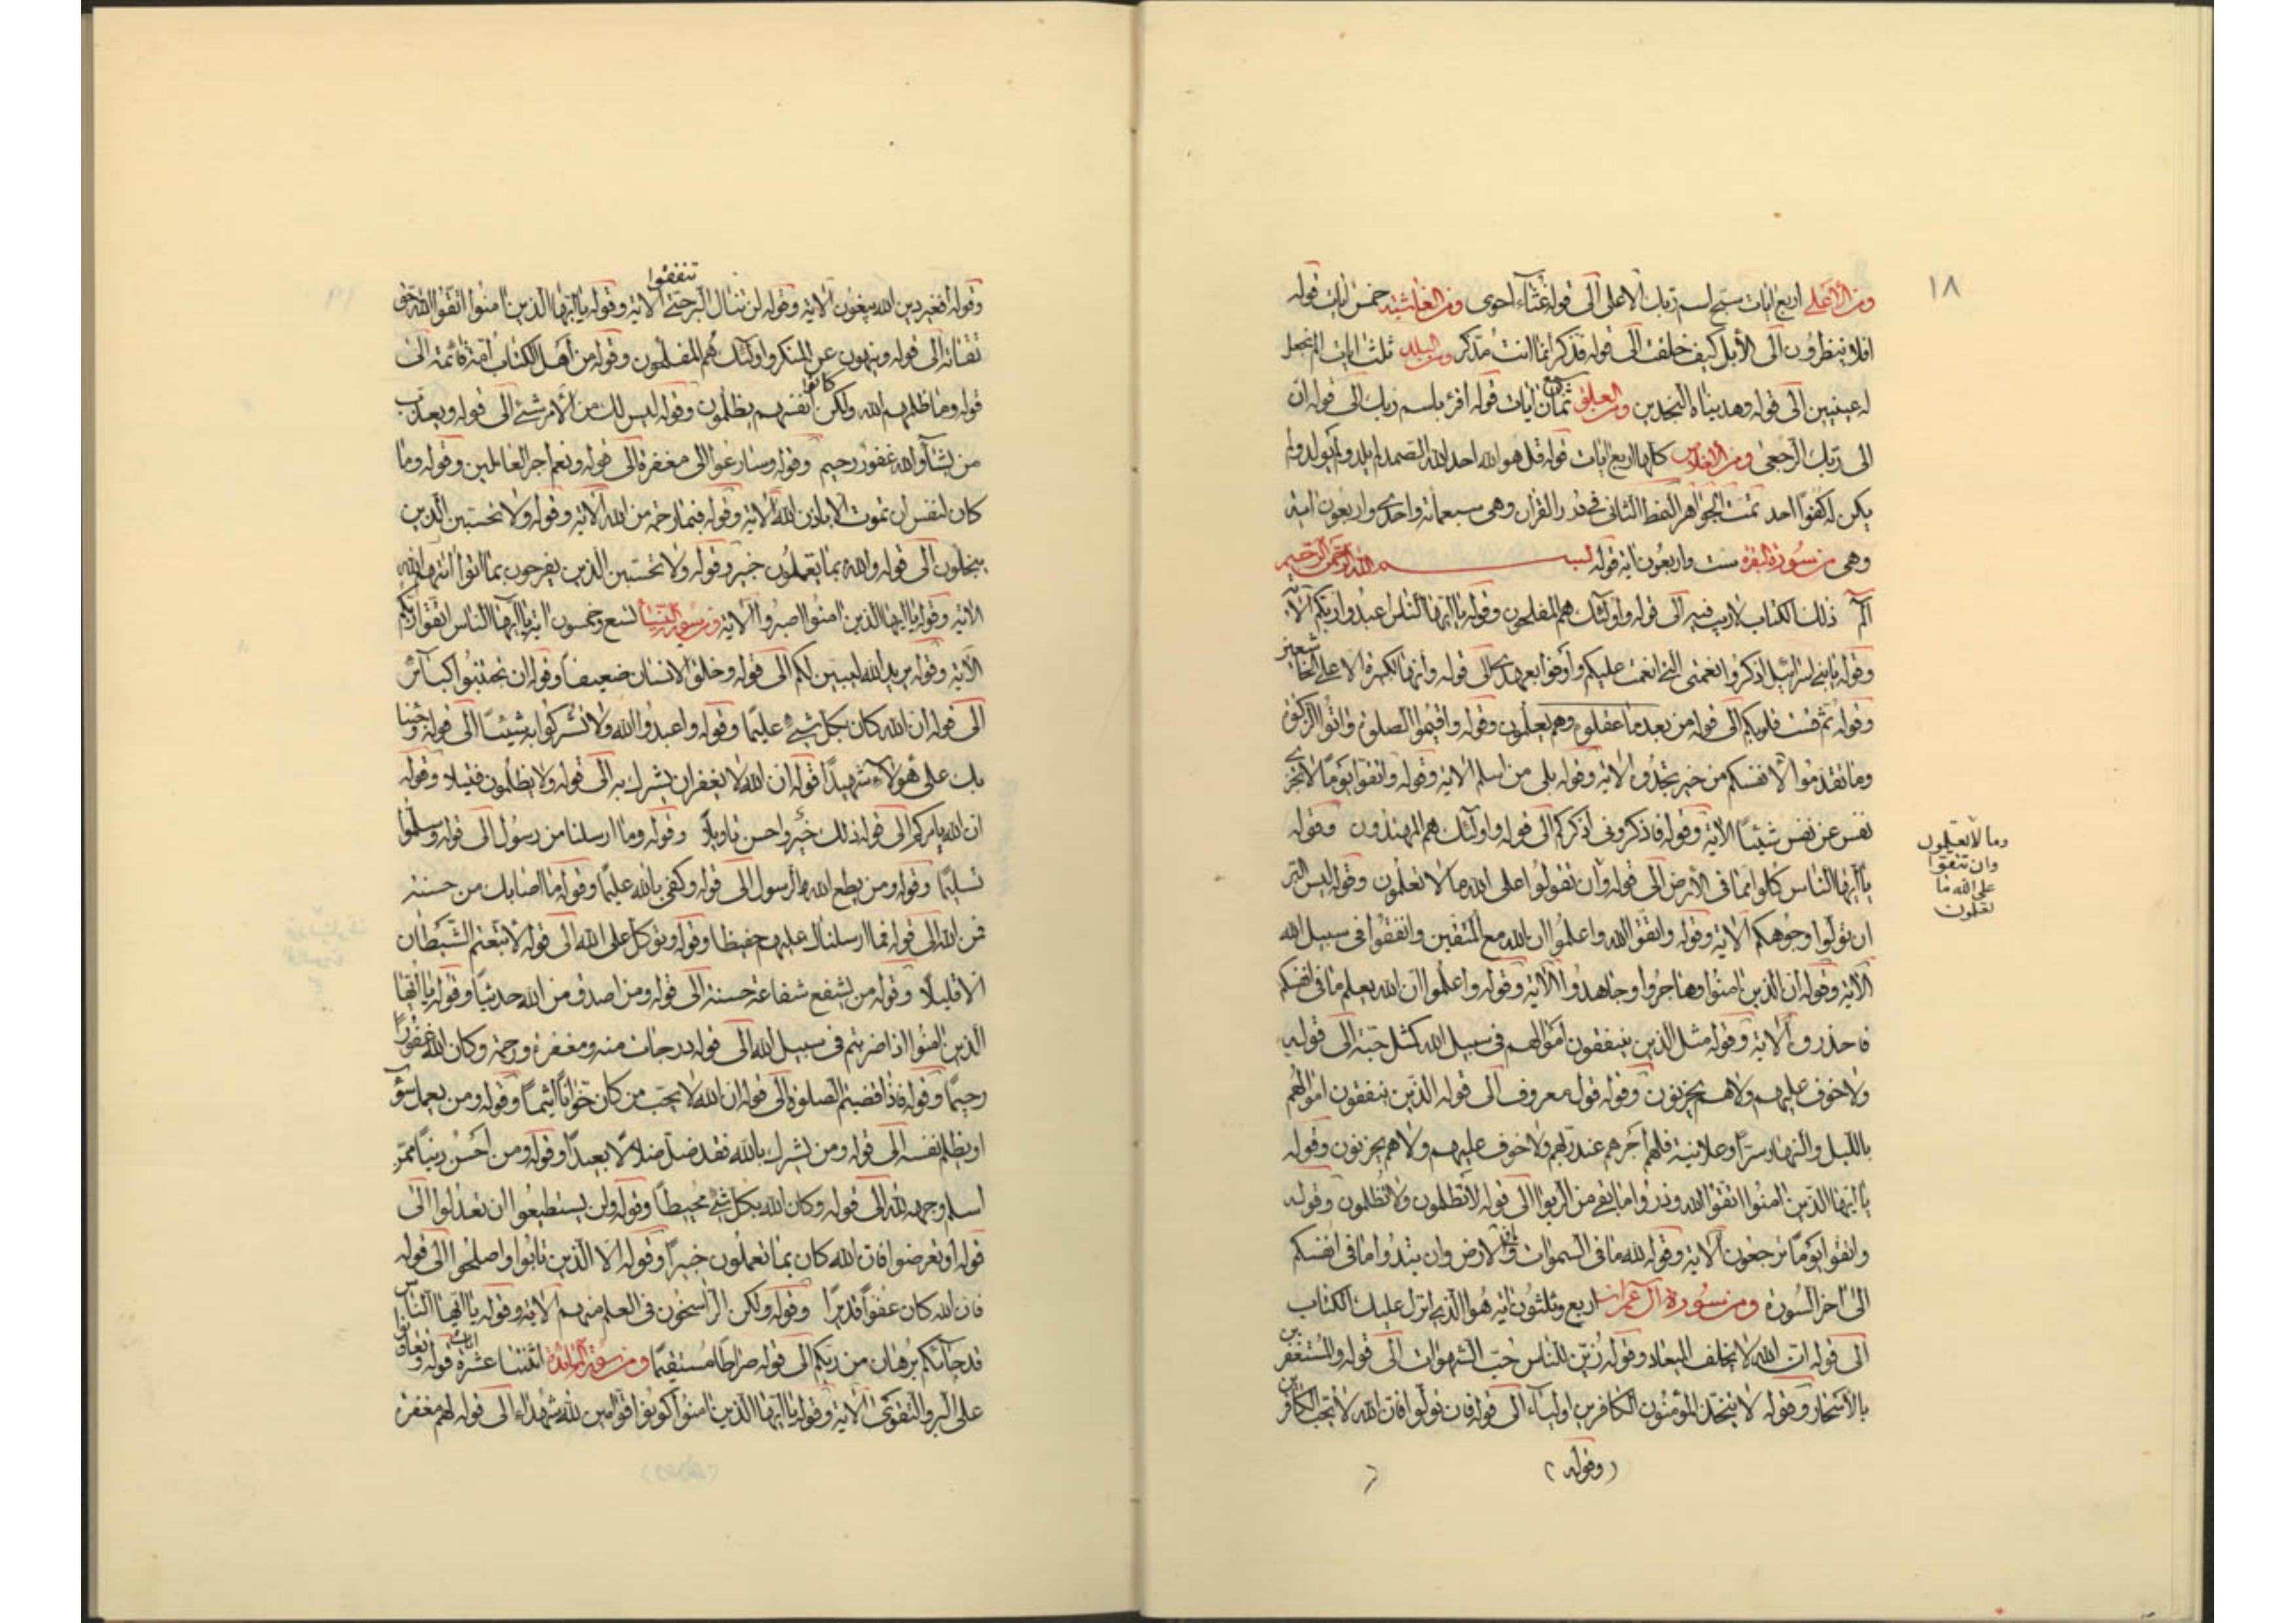 ١٨
ومن الأعلى اربع ايات سبح اسم ربك الاعلى الى قوله غثاء احوى ومن الغاشية خمس ايات قوله
افلا ينظرون الى الأبل كيف خلقت الى قوله فذكر انما انت مذكر ومن البلد ثلث ايات الم نجعل
له عينين الى قوله وهديناه النجدين ومن العلق ثمان ايات قوله اقرء باسم ربك الى قوله ان
الى ربك الرجعى ومن الاخلاص كلها اربع ايات قوله قل هو الله احد الله الصمد لم يلد ولم يولد ولم
يكن له كفوا احد تمت الجواهر النمط الثانى فى درر القرآن وهى سبعمائة واحدى واربعون اية
وهى من سورة البقرة ست واربعون اية قوله بسم الله الرحمن الرحيم
الم ذلك الكتاب لا ريب فيه الى قوله واولئك هم المفلحون وقوله يا ايها الناس اعبدوا ربكم الآية
وقوله يا بنى اسرائيل اذكروا نعمتى التى انعمت عليكم وأوفوا بعهدى الى قوله وانها لكبيرة الا على الخاشعين
وقوله ثم قست قلوبكم الى قوله من بعد ما عقلوه وهم يعلمون وقوله واقيموا الصلوة واتوا الزكوة
وما تقدموا لأنفسكم من خير تجدوه الآية وقوله بلى من اسلم الآية وقوله واتقوا يوما لا تجزى
نفس عن نفس شيئا الآية وقوله فاذكرونى اذكركم الى قوله واولئك هم المهتدون وقوله
يا ايها الناس كلوا مما فى الأرض الى قوله وأن تقولوا على الله ما لا تعلمون وقوله ليس البر
ان تولوا وجوهكم الآية وقوله واتقوا الله واعلموا ان الله مع المتقين وانفقوا فى سبيل الله
الآية وقوله ان الذين امنوا وهاجروا وجاهدوا الآية وقوله واعلموا ان الله يعلم ما فى انفسكم
فاحذروه الآية وقوله مثل الذين ينفقون اموالهم فى سبيل الله كمثل حبة الى قوله
ولا خوف عليهم ولا هم يحزنون وقوله قول معروف الى قوله الذين ينفقون اموالهم
بالليل والنهار سرا وعلانية فلهم أجرهم عند ربهم ولا خوف عليهم ولا هم يحزنون وقوله
يا ايها الذين امنوا اتقوا الله وذروا ما بقى من الربوا الى قوله لا تظلمون ولا تظلمون وقوله
واتقوا يوما ترجعون الآية وقوله لله ما فى السموات والارض وان تبدوا ما فى انفسكم
الى اخر السورة ومن سورة آل عمران اربع وثلثون اية هو الذى انزل عليك الكتاب
الى قوله ان الله لا يخلف الميعاد وقوله زين للناس حب الشهوات الى قوله والمستغفرين
بالأسحار وقوله لا يتخذ المؤمنون الكافرين اولياء الى قوله فان تولوا فان الله لا يحب الكافرين
(وقوله)
وما لا تعلمون
وان تنفقوا
على الله ما
تعلمون
تنفقوا
وقوله أفغير دين الله يبغون الآية وقوله لن تنال البر حتى الآية وقوله يا ايها الذين امنوا اتقوا الله حق
تقاته الى قوله وينهون عن المنكر واولئك هم المفلحون وقوله من أهل الكتاب امة قائمة الى
قوله وما ظلمهم الله ولكن كانوا أنفسهم يظلمون وقوله ليس لك من الأمر شئ الى قوله ويعذب
من يشآء والله غفور رحيم وقوله وسارعوا الى مغفرة الى قوله ونعم اجر العاملين وقوله وما
كان لنفس ان تموت الا باذن الله الآية وقوله فبما رحمة من الله الآية وقوله ولا تحسبن الذين
يبخلون الى قوله والله بما يعملون خبير وقوله ولا تحسبن الذين يفرحون بما اتوا اتيهم الله
الآية وقوله يا ايها الذين امنوا اصبروا الآية ومن سورة النساء تسع وخمسون اية يا ايها الناس اتقوا ربكم
الآية وقوله يريد الله ليبين لكم الى قوله وخلق الانسان ضعيفا وقوله ان تجتنبوا كبآئر
الى قوله ان الله كان بكل شئ عليما وقوله واعبدوا الله ولا تشركوا به شيئا الى قوله وجئنا
بك على هؤلاء شهيدا قوله ان الله لا يغفر ان يشرك به الى قوله ولا يظلمون فتيلا وقوله
ان الله يامركم الى قوله ذلك خير واحسن تاويلا وقوله وما ارسلنا من رسول الى قوله وسلموا
تسليما وقوله ومن يطع الله والرسول الى قوله وكفى بالله عليما وقوله ما اصابك من حسنة
فمن الله الى قوله فما ارسلناك عليهم حفيظا وقوله وتوكل على الله الى قوله لاتبعتم الشيطان
الا قليلا وقوله من يشفع شفاعة حسنة الى قوله ومن اصدق من الله حديثا وقوله يا ايها
الذين امنوا اذا ضربتم فى سبيل الله الى قوله درجات منه ومغفرة ورحمة وكان الله غفورا
رحيما وقوله فاذا قضيتم الصلوة الى قوله ان الله لا يحب من كان خوانا اثيما وقوله ومن يعمل سوءآ
او يظلم نفسه الى قوله ومن يشرك بالله فقد ضل ضلالا بعيدا وقوله ومن احسن دينا ممن
اسلم وجهه لله الى قوله وكان الله بكل شئ محيطا وقوله ولن يستطيعوا ان تعدلوا الى
قوله او تعرضوا فان الله كان بما تعملون خبيرا وقوله الا الذين تابوا واصلحوا الى قوله
فان الله كان عفوا قديرا وقوله ولكن الراسخون فى العلم منهم الآية وقوله يا ايها الناس
قد جائكم برهان من ربكم الى قوله صراطا مستقيما ومن سورة المائدة اثنتا عشرة اية قوله وتعاونوا
على البر والتقوى الآية وقوله يا ايها الذين امنوا كونوا قوامين لله شهداء الى قوله لهم مغفرة